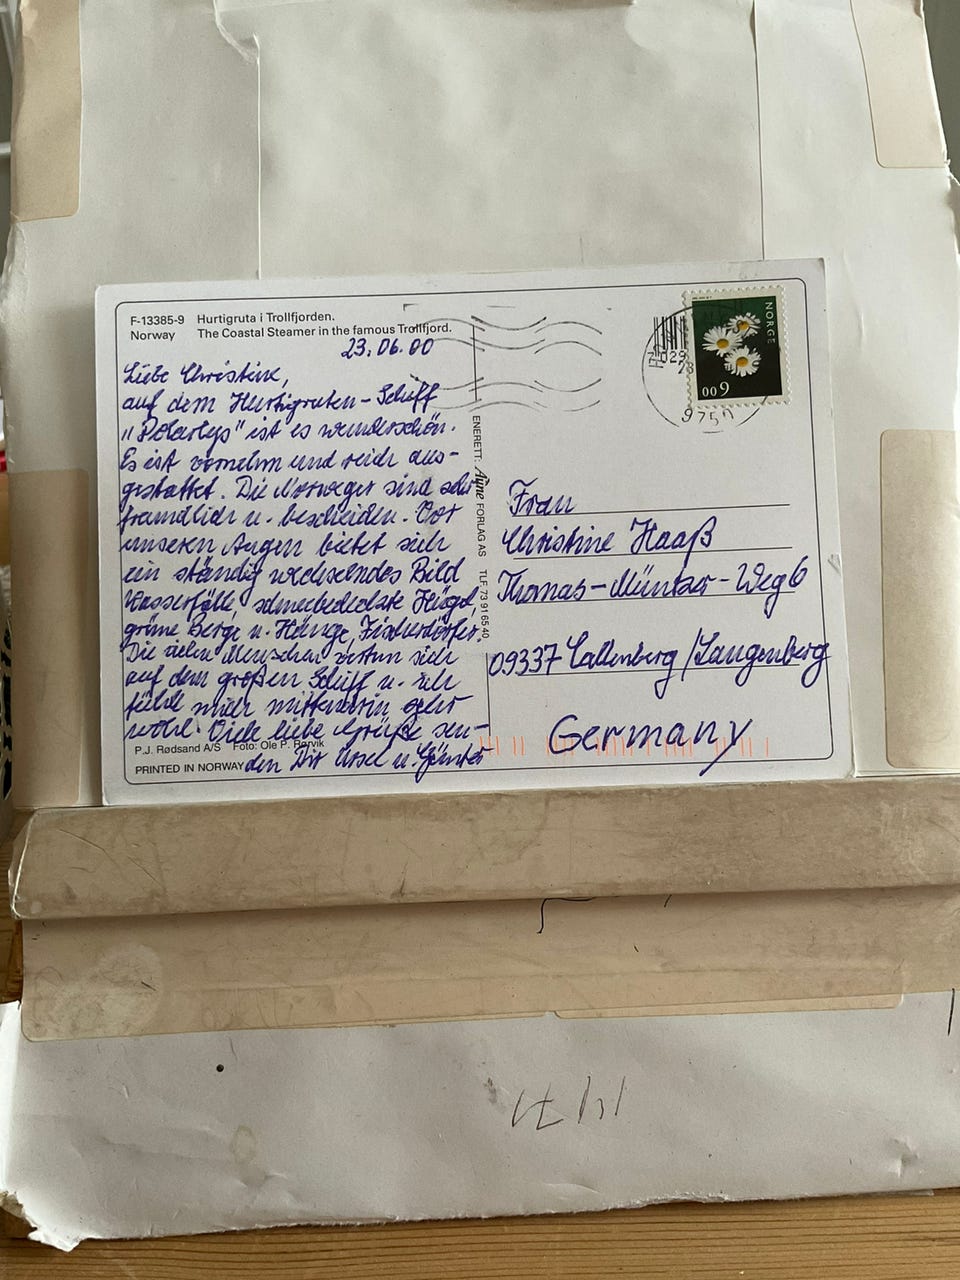 F-13385-9 Hurtigruta i Trollfjorden.
Norway The Coastal Steamer in the famous Trollfjord.
23.06.00
Liebe Christine,
auf dem Hurtigruten-Schiff
"Polarlys" ist es wunderschön.
Es ist vornehm und reich aus-
gestattet. Die Norweger sind sehr
freundlich u. bescheiden. Vor
unseren Augen bietet sich
ein ständig wechselndes Bild
Wasserfälle, schneebedeckte Hügel,
grüne Berge u. Hänge, Fischerdörfer.
Die vielen Menschen
auf dem großen Schiff u. ich
fühle mich mittendrin sehr
wohl. Viele liebe Grüße sen-
den Dir Ursel u. Günter
P.J. Rødsand A/S Foto: Ole P. Rørvik
PRINTED IN NORWAY
ENERETT: Aune FORLAG AS TLF. 73 91 65 40
NORGE
600
9750
Frau
Christine Haaß
Thomas-Müntzer-Weg 6
09337 Callenberg/Langenberg
Germany